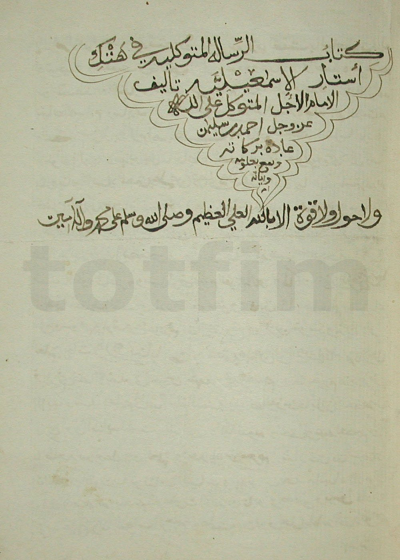 كتاب الرسالة المتوكلية في هتك
أستار الإسمعيلية تأليف
الإمام الأجل المتوكل على الله
عز وجل احمد بن سليمن
عادة بركاته
ونفع بعلومه
ولا حول ولا قوة الا بالله العلي العظيم وصلى الله وسلم على محمد وآله آمين
totfim